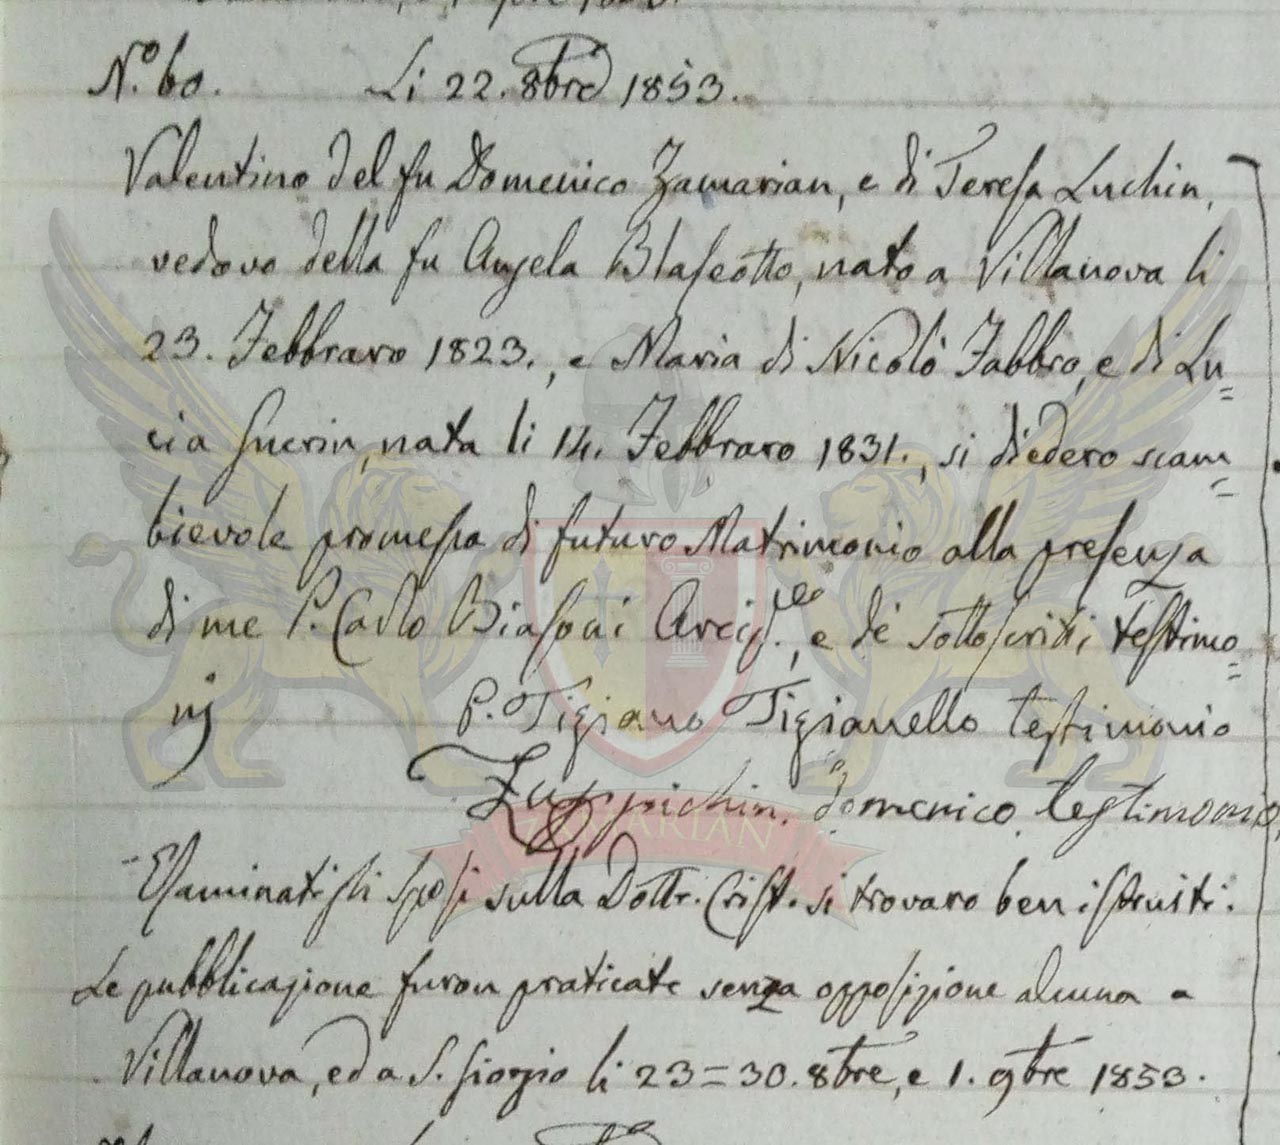 N.o 60. Li 22. 8bre 1853.
Valentino del fu Domenico Zamarian, e di Teresa Luchin,
vedovo della fu Angela Blaseotto, nato a Villanova li
23. Febbraro 1823., e Maria di Nicolò Fabbro, e di Lu=
cia Guerin, nata li 14. Febbraro 1831., si diedero scam=
bievole promessa di futuro Matrimonio alla presenza
di me P. Carlo Biasoni e de' sottoscritti testimo=
nj P. Tiziano Tizianello testimonio
Zuppichin. Domenico testimonio
ZAMARIAN
Esaminati gli sposi sulla Dottr. Crist. si trovaro ben istruiti.
Le pubblicazione furon praticate senza opposizione alcuna a
Villanova, ed a S. Giorgio li 23=30. 8bre, e 1. 9bre 1853.